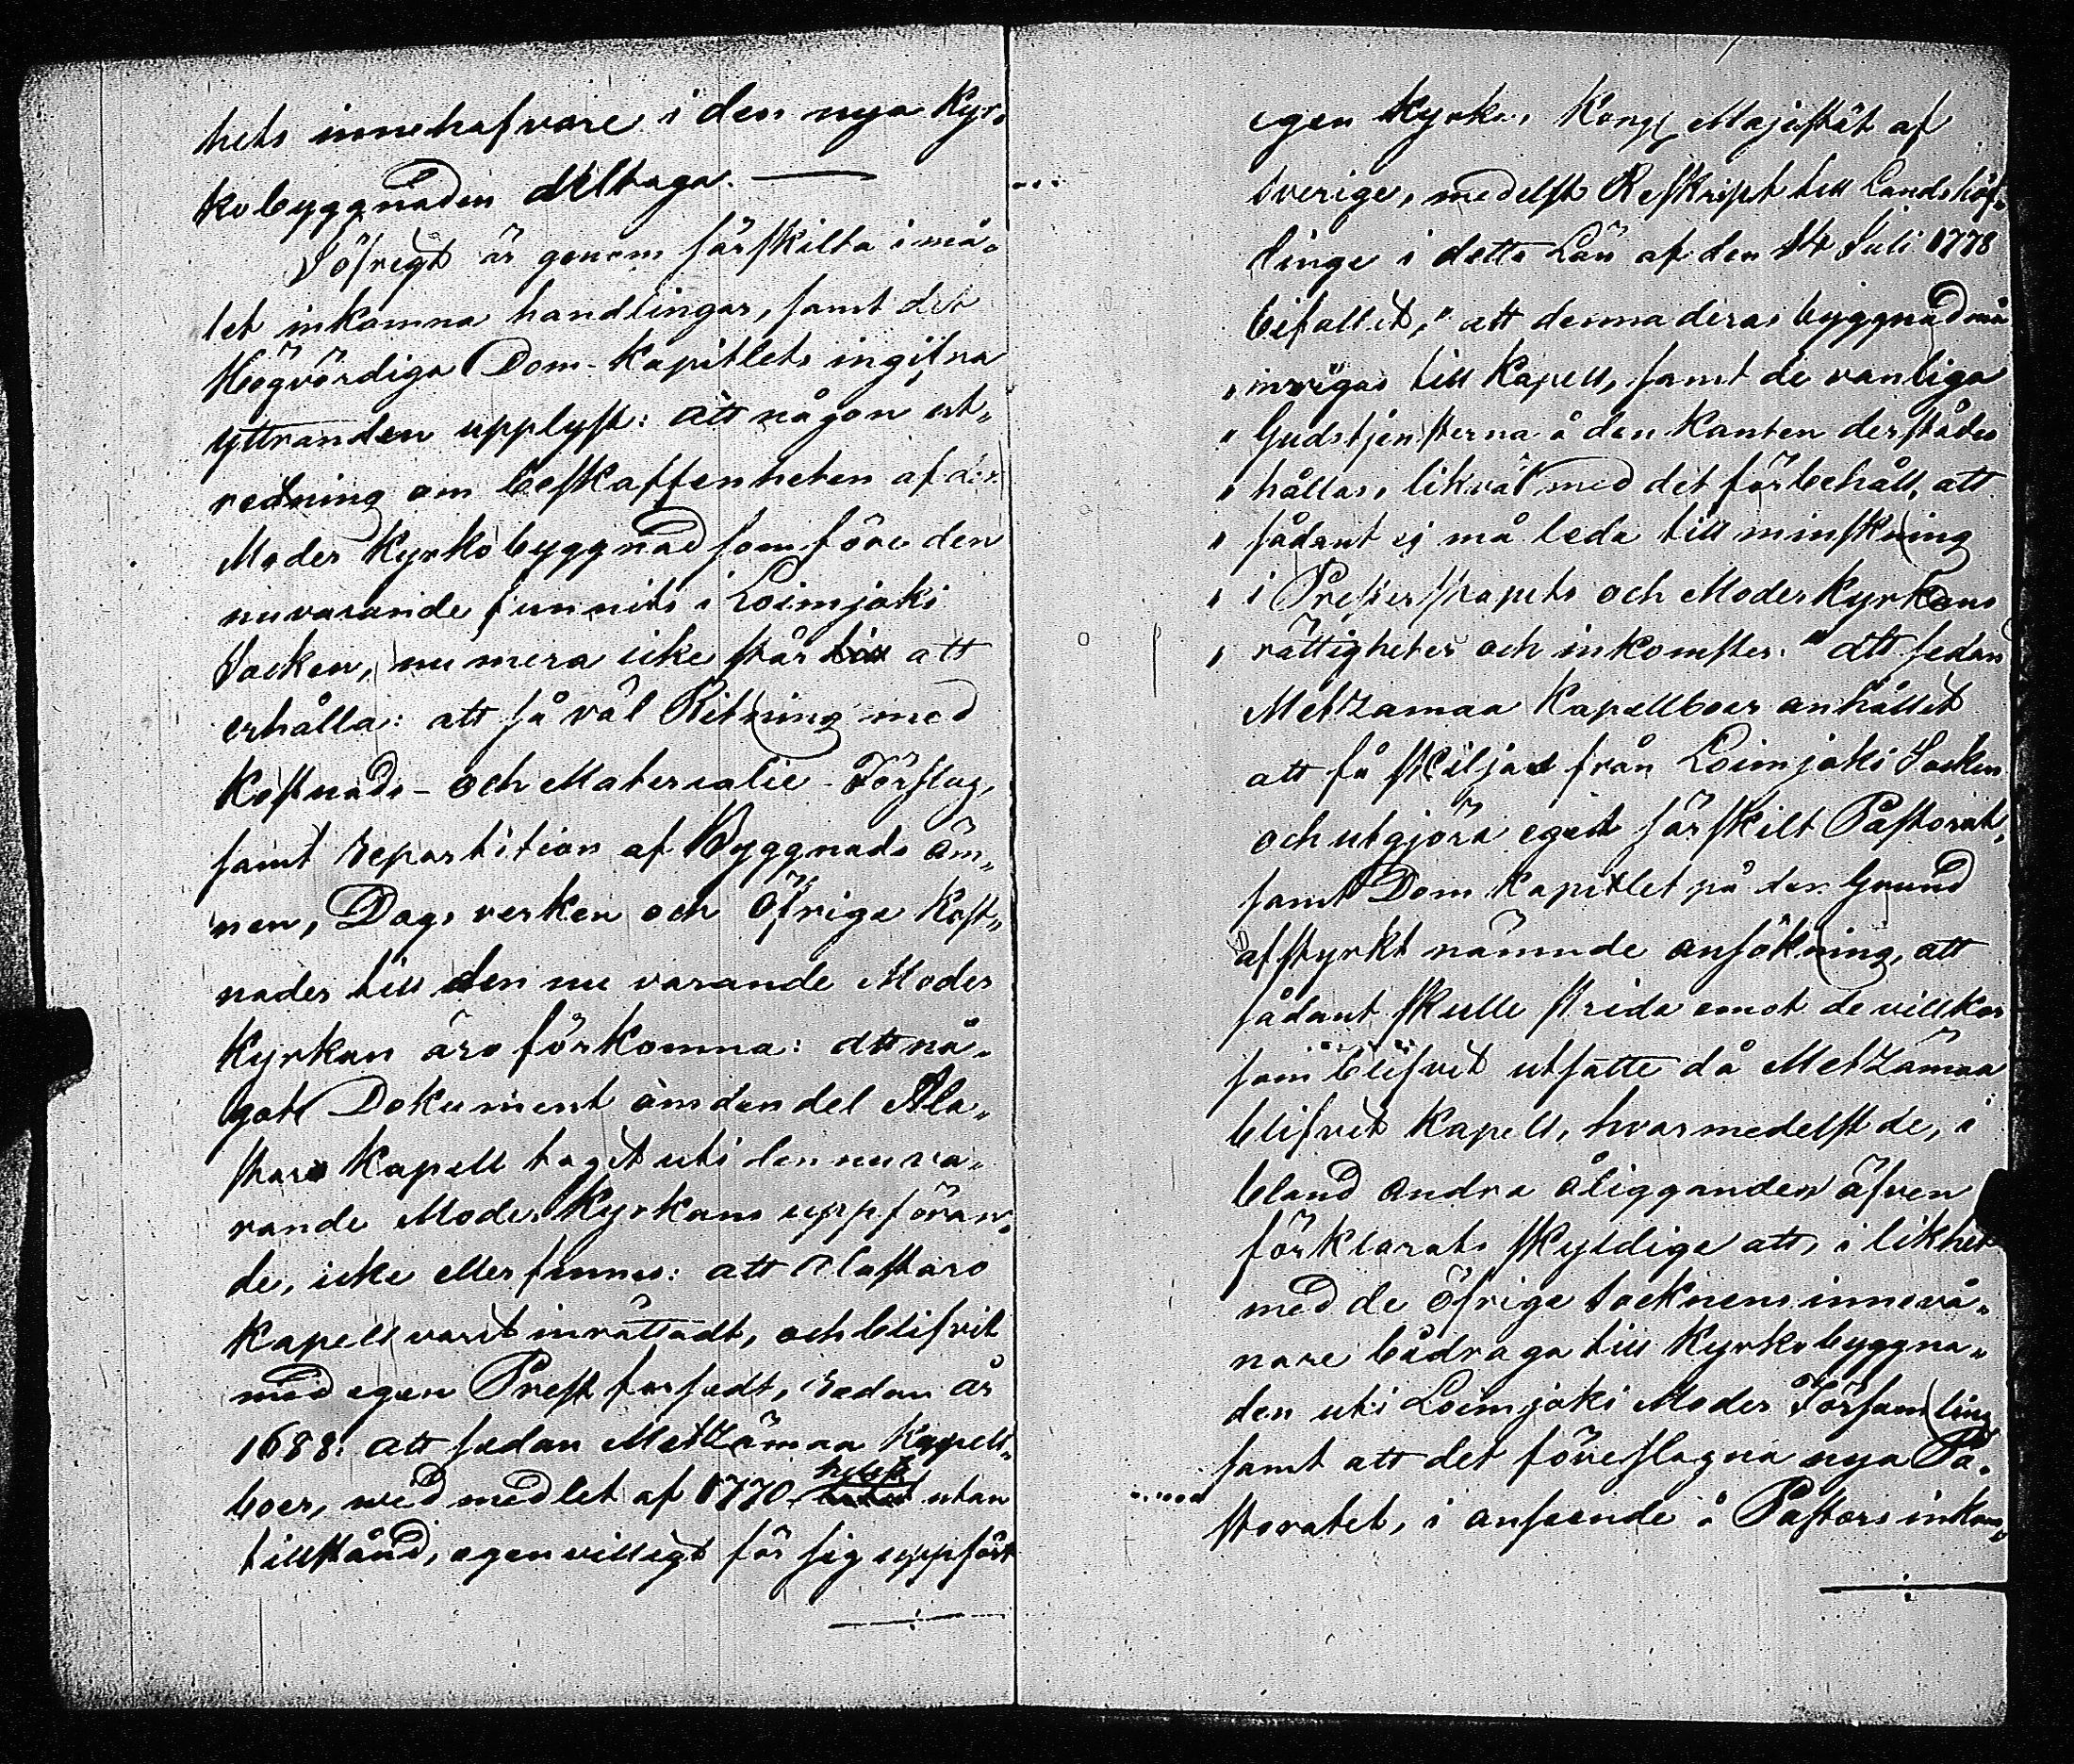 hets innehafvare i den nya Kyr„
kobyggnaden deltaga. —
I öfrigt är genom särskilta i må„
let inkomna handlingar, samt det
Högvördiga Dom-Kapitlets ingifna
yttranden upplyst: att någon ut„
redning om beskaffenheten af den
Moder Kyrkobyggnad som före den
nuvarande funnits i Loimjoki
Socken, nu mera icke står till att
erhålla: att så väl Ritning med
Kostnads- och Materialie-Förslag,
samt repartition af Byggnads äm„
nen, Dagsverken och Öfriga Kost„
nader till den nu varande Moder
Kyrkan äro förkomna: att nå„
got Dokument om den del Ala„
staro Kapell tagit uti den nuva„
rande Moder Kyrkans uppföran„
de, icke eller finnes: att Alastaro
Kapell varit inrättadt, och blifvit
med egen Prest försedt, sedan år
1688: att sedan Metzämaa Kapell„
boer, wid medlet af 1770 talet utan
tillstånd, egenvilligt för sig uppfört
egen Kyrka, Kongl Majestät af
Sverige, medelst Reskript till Landshöf„
dinge i detta Län af den 14 Juli 1778
bifallit, "att denna deras byggnad må
„ invigas till Kapell, samt de vanliga
„ Gudstjensterna å den kanten derstädes
„ hållas, likväl med det förbehåll, att
„ sådant ej må leda till minskning
„ i Presterskapets och Moder kyrkans
„ rättigheter och inkomster." att sedan
Metzamaa Kapellboer anhållit
att få skiljas från Loimjoki Socken
och utgjöra eget särskilt Pastorat,
samt Dom Kapitlet på den Grund
afstyrkt nämnde ansökning, att
sådant skulle strida emot de villkor
som blifvit utsatte då Metzämaa
blifvit Kapell, hvarmedelst de, i
bland andra åligganden äfven
förklarats skyldige att, i likhet
med de Öfrige socknens innevå„
nare bidraga till Kyrkobyggna„
den uti Loimjoki Moder Församling
samt att det föreslagna nya Pa„
storatet, i anseende å Pastors inkom„